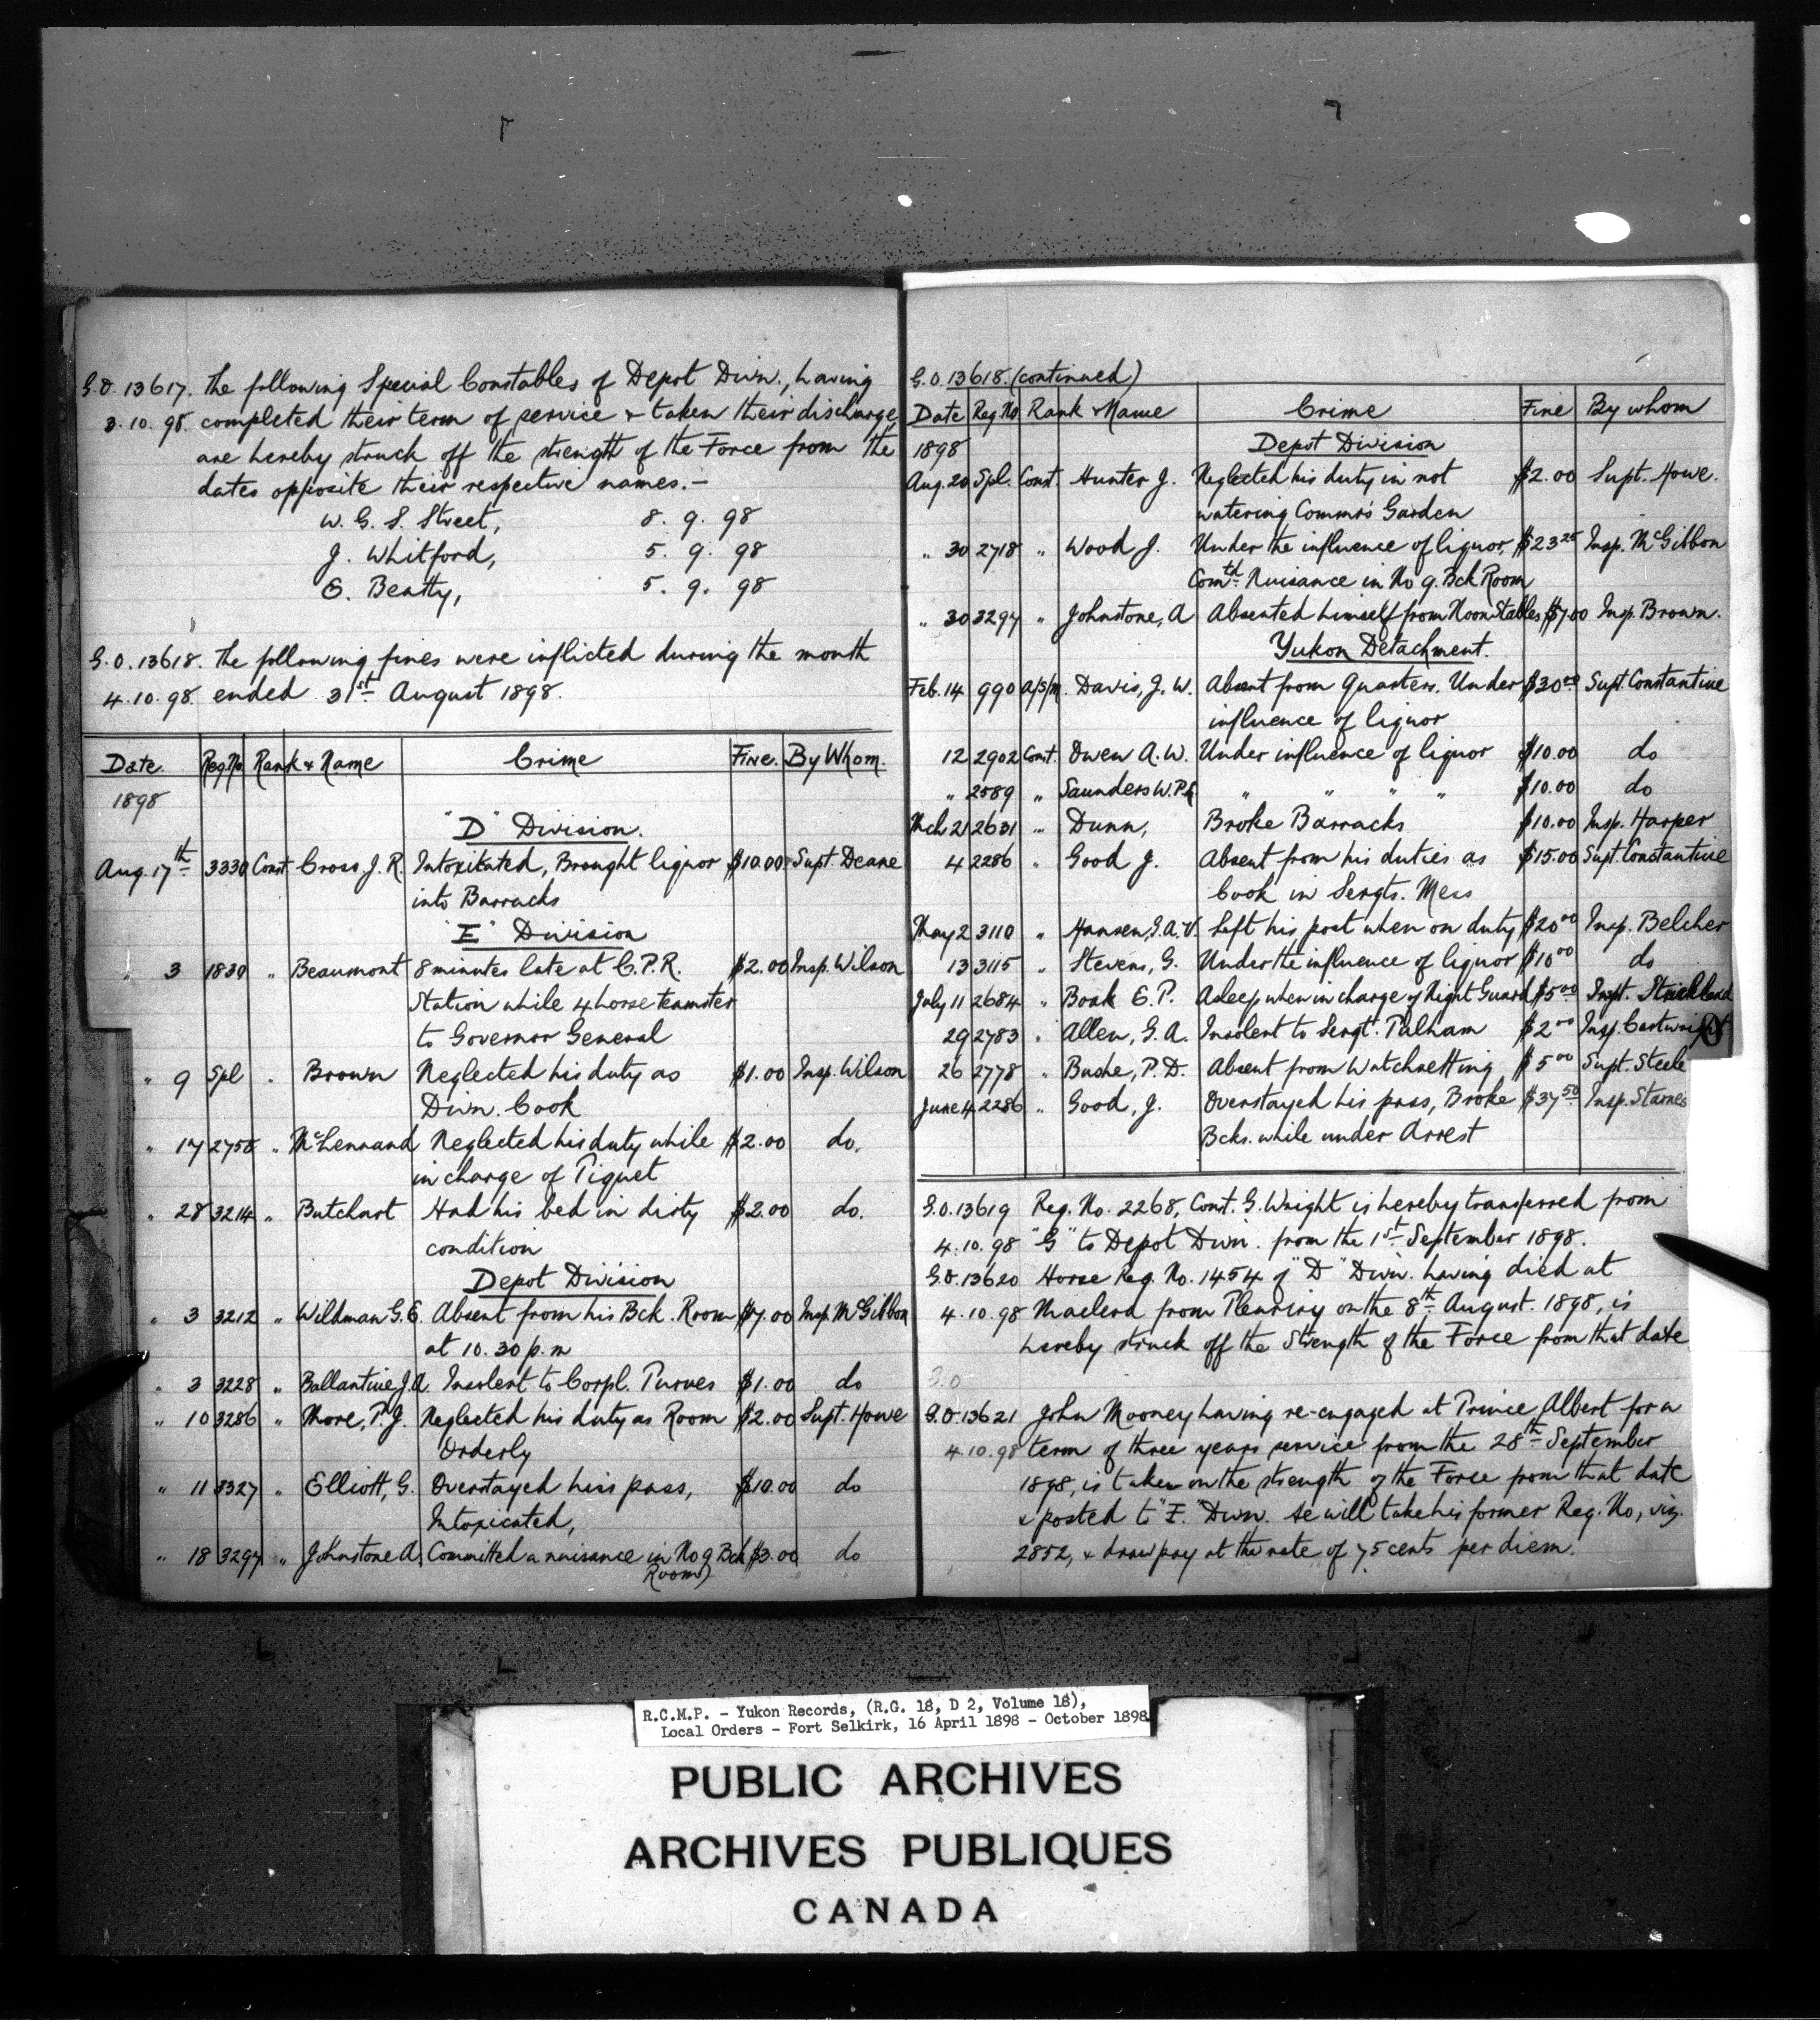 G.O. 13617. The following Special Constables of Depot Divn., having
3.10.98. completed their term of service & taken their discharge,
are hereby struck off the strength of the Force from the
dates opposite their respective names.—
W. G. S. Street, 8. 9. 98
J. Whitford, 5. 9. 98
E. Beatty, 5. 9. 98
G.O. 13618. The following fines were inflicted during the month
4.10.98. ended 31st August 1898.
Date. Reg.No. Rank & Name Crime Fine. By Whom.
1898
"D" Division.
Aug. 17th 3330 Const Cross, J. R. Intoxicated, Brought liquor $10.00 Supt. Deane
into Barracks
"E" Division
" 3 1839 " Beaumont 8 minutes late at C.P.R. $2.00 Insp. Wilson
Station while 4 horse teamster
to Governor General
" 9 Spl " Brown Neglected his duty as $1.00 Insp. Wilson
Divn. Cook
" 17 2758 " McLennand Neglected his duty while $2.00 do.
in charge of Piquet
" 28 3214 " Butchart Had his bed in dirty $2.00 do.
condition
Depot Division
" 3 3212 " Wildman G.E. Absent from his Bck. Room $7.00 Insp. McGibbon
at 10.30 p.m
" 3 3228 " Ballantine J.A. Insolent to Corpl. Purves $1.00 do
" 10 3286 " More, P.J. Neglected his duty as Room $2.00 Supt. Howe
Orderly
" 11 3327 " Elliott, G. Overstayed his pass, $10.00 do
Intoxicated,
" 18 3297 " Johnstone A. Committed a nuisance in No 9 Bck $3.00 do
Room)
G.O. 13618. (continued)
Date Reg.No Rank & Name Crime Fine By whom
1898 Depot Division
Aug. 20 Spl. Const. Hunter J. Neglected his duty in not $2.00 Supt. Howe.
watering Commr's Garden
" 30 2718 " Wood J. Under the influence of liquor, $23.25 Insp. McGibbon
Comtd. Nuisance in No 9. Bck Room
" 30 3297 " Johnstone, A Absented himself from Noon Stables $7.00 Insp. Brown.
Yukon Detachment.
Feb. 14 990 a/s/m. Davis, J. W. Absent from Quarters. Under $30.00 Supt. Constantine
influence of liquor
12 2902 Const. Owen A. W. Under influence of liquor $10.00 do
" 2589 " Saunders W.P. " " " " $10.00 do
Mch 21 2631 " Dunn, Broke Barracks $10.00 Insp. Harper
4 2286 " Good J. Absent from his duties as $15.00 Supt. Constantine
Cook in Sergts. Mess
May 2 3110 " Hansen, G.A.V. Left his post when on duty $20.00 Insp. Belcher
13 3115 " Stevens, G. Under the influence of liquor $10.00 do
July 11 2684 " Boak E. P. Asleep when in charge of Night Guard $5.00 Inspt. Strickland
29 2783 " Allen, G. A. Insolent to Sergt. Pulham $2.00 Insp. Cartwright
26 2778 " Bushe, P. D. Absent from Watchsetting $5.00 Supt. Steele
June 4 2286 " Good, J. Overstayed his pass, Broke $37.50 Insp. Starnes
Bcks. while under Arrest
G.O. 13619 Reg. No. 2268, Const. G. Wright is hereby transferred from
4.10.98 "G" to Depot Divn. from the 1st September 1898.
G.O. 13620 Horse Reg. No. 1454 of "D" Divn. having died at
4.10.98 Macleod from Pleurisy on the 8th August. 1898, is
hereby struck off the Strength of the Force from that date
G.O
G.O. 13621 John Mooney having re-engaged at Prince Albert for a
4.10.98 term of three years service from the 28th September
1898, is taken on the strength of the Force from that date
& posted to "F." Divn. He will take his former Reg. No, viz.
2852, & draw pay at the rate of 75 cents per diem.
R.C.M.P. - Yukon Records, (R.G. 18, D 2, Volume 18),
Local Orders - Fort Selkirk, 16 April 1898 - October 1898
PUBLIC ARCHIVES
ARCHIVES PUBLIQUES
CANADA